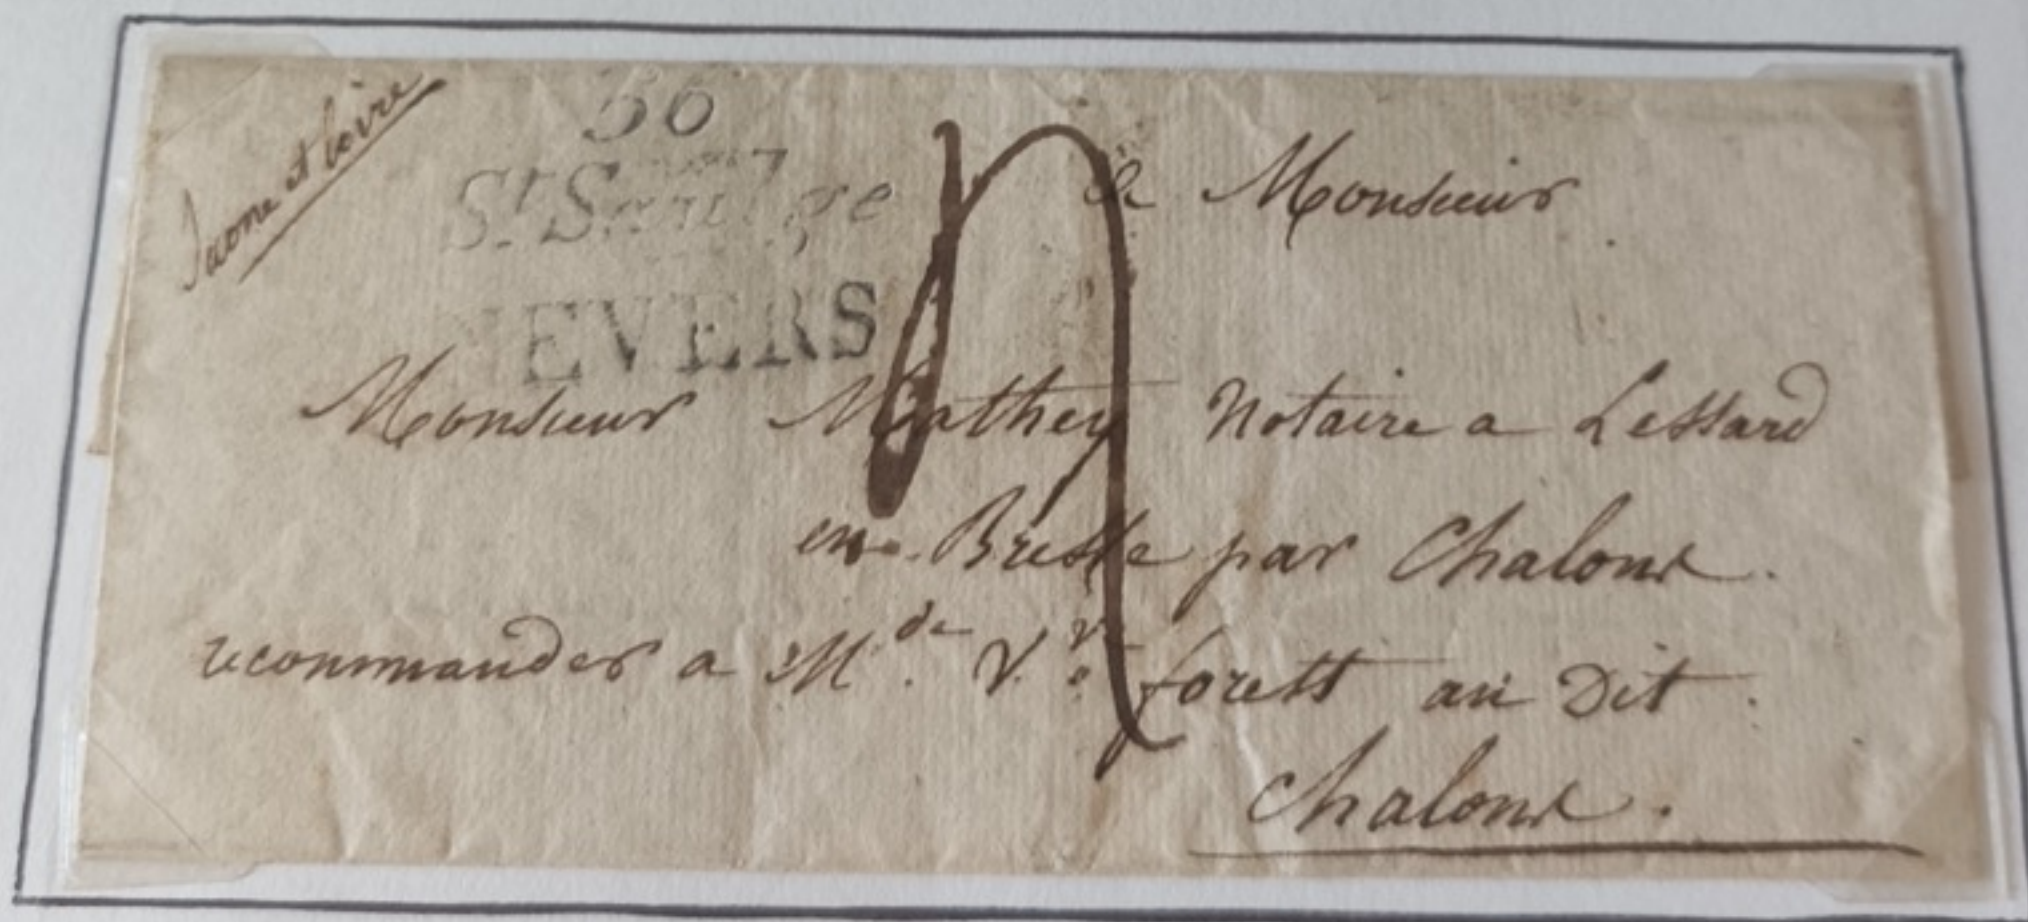 Saone et Loire
56
St. Saulge
NEVERS
a Monsieur
Monsieur Mathey Notaire a Lessard
en Bresse par Chalons.
recommander a M.de V.ve forest au Dit
Chalons.